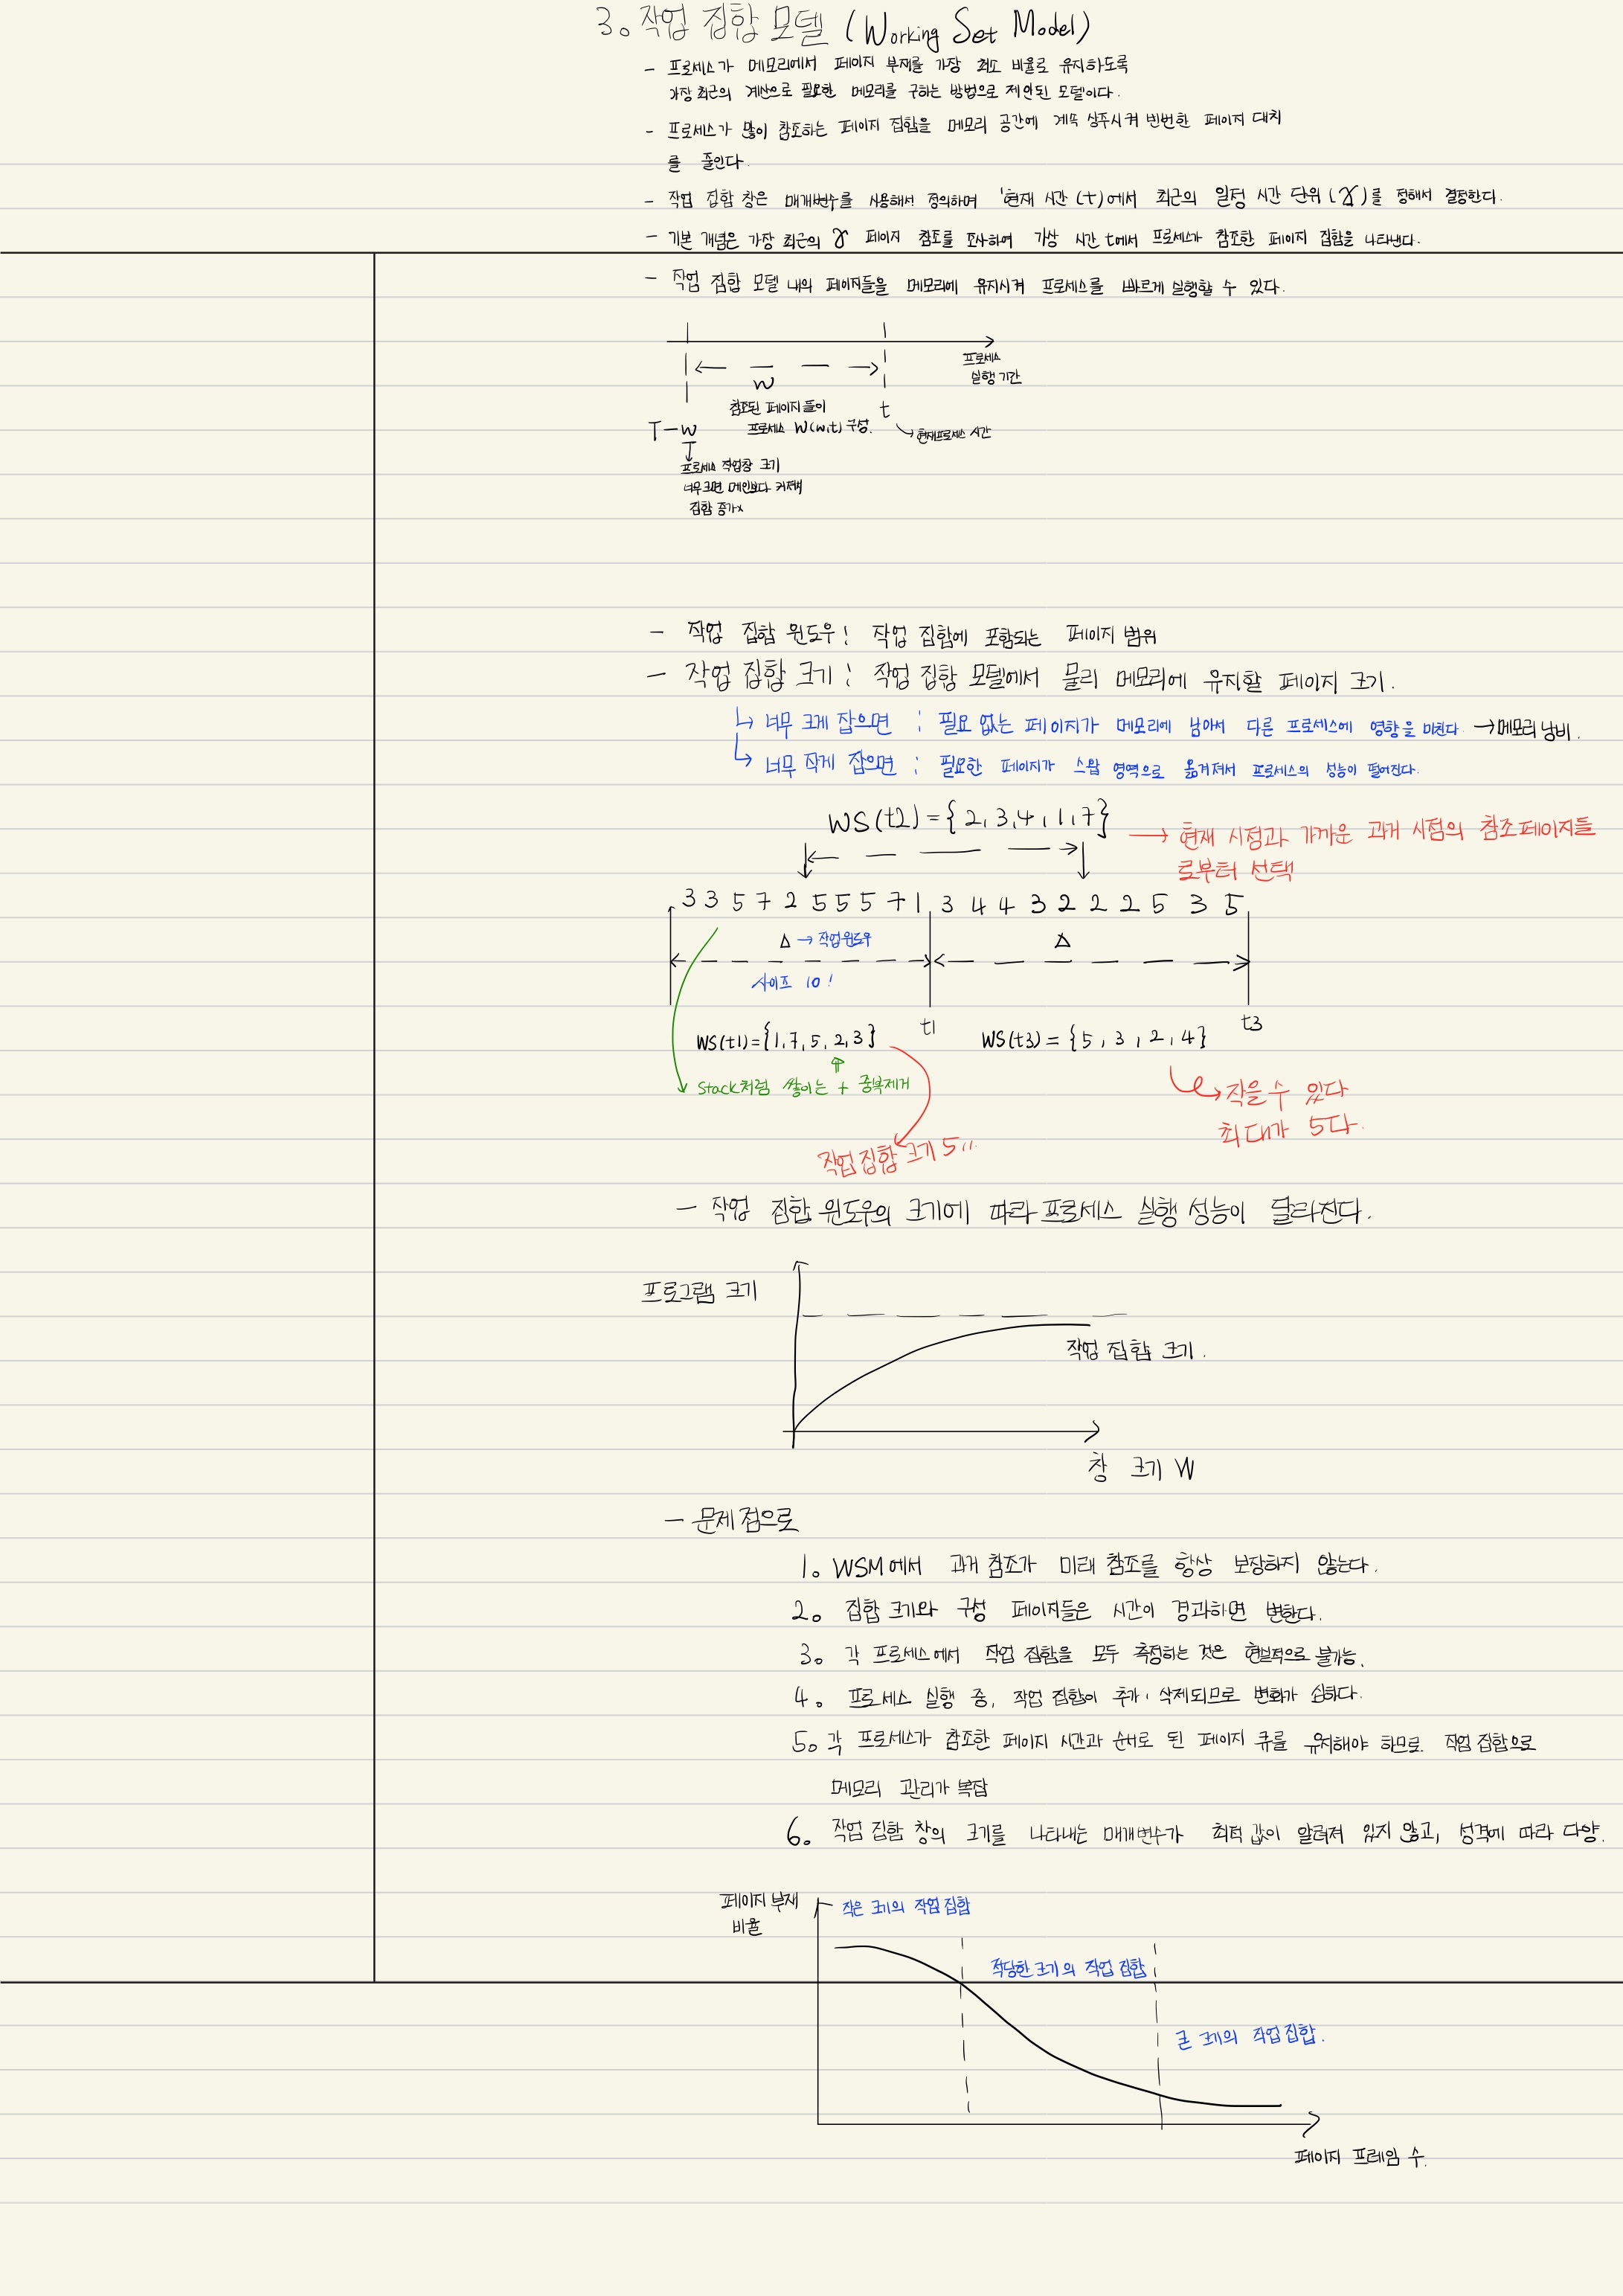 3. 작업 집합 모델 (Working Set Model)
- 프로세스가 메모리에서 페이지 부재를 가장 최소 비율로 유지하도록
가장 최근의 계산으로 필요한 메모리를 구하는 방법으로 제안된 모델이다.
- 프로세스가 많이 참조하는 페이지 집합을 메모리 공간에 계속 상주시켜 빈번한 페이지 대치
를 줄인다.
- 작업 집합 창은 매개변수를 사용해서 정의하며 '현재 시간 (t)에서 최근의 일정 시간 단위 (γ)를 정해서 결정한다.
- 기본 개념은 가장 최근의 γ 페이지 참조를 조사하여 가상 시간 t에서 프로세스가 참조한 페이지 집합을 나타낸다.
- 작업 집합 모델 내의 페이지들을 메모리에 유지시켜 프로세스를 빠르게 실행할 수 있다.
프로세스
실행 기간
w
참조된 페이지들이
프로세스 W(w,t) 구성.
t
현재프로세스 시간
T-w
프로세스 작업창 크기
너무크면 메인보다 커져서
집합 증가x
- 작업 집합 윈도우 : 작업 집합에 포함되는 페이지 범위
- 작업 집합 크기 : 작업 집합 모델에서 물리 메모리에 유지할 페이지 크기.
↳ 너무 크게 잡으면 : 필요 없는 페이지가 메모리에 남아서 다른 프로세스에 영향을 미친다. → 메모리 낭비.
↳ 너무 작게 잡으면 : 필요한 페이지가 스왑 영역으로 옮겨져서 프로세스의 성능이 떨어진다.
WS(t2) = {2, 3, 4, 1, 7}
→ 현재 시점과 가까운 과거 시점의 참조페이지들
로부터 선택
3 3 5 7 2 5 5 5 7 1 3 4 4 3 2 2 2 5 3 5
Δ → 작업윈도우
Δ
사이즈 10!
t1
t3
WS(t1) = {1, 7, 5, 2, 3}
WS(t3) = {5, 3, 2, 4}
Stack처럼 쌓이는 + 중복제거
작을수 있다
최대가 5다.
작업집합 크기 5!!
- 작업 집합 윈도우의 크기에 따라 프로세스 실행 성능이 달라진다.
프로그램 크기
작업 집합 크기.
창 크기 W
- 문제점으로
1. WSM에서 과거 참조가 미래 참조를 항상 보장하지 않는다.
2. 집합 크기와 구성 페이지들은 시간이 경과하면 변한다.
3. 각 프로세스에서 작업 집합을 모두 측정하는 것은 현실적으로 불가능.
4. 프로세스 실행 중, 작업 집합이 추가, 삭제되므로 변화가 심하다.
5. 각 프로세스가 참조한 페이지 시간과 순서로 된 페이지 큐를 유지해야 하므로 작업 집합으로
메모리 관리가 복잡
6. 작업 집합 창의 크기를 나타내는 매개변수가 최적 값이 알려져 있지 않고, 성격에 따라 다양.
페이지 부재
비율
작은 크기의 작업 집합
적당한 크기의 작업 집합
큰 크기의 작업 집합.
페이지 프레임 수.